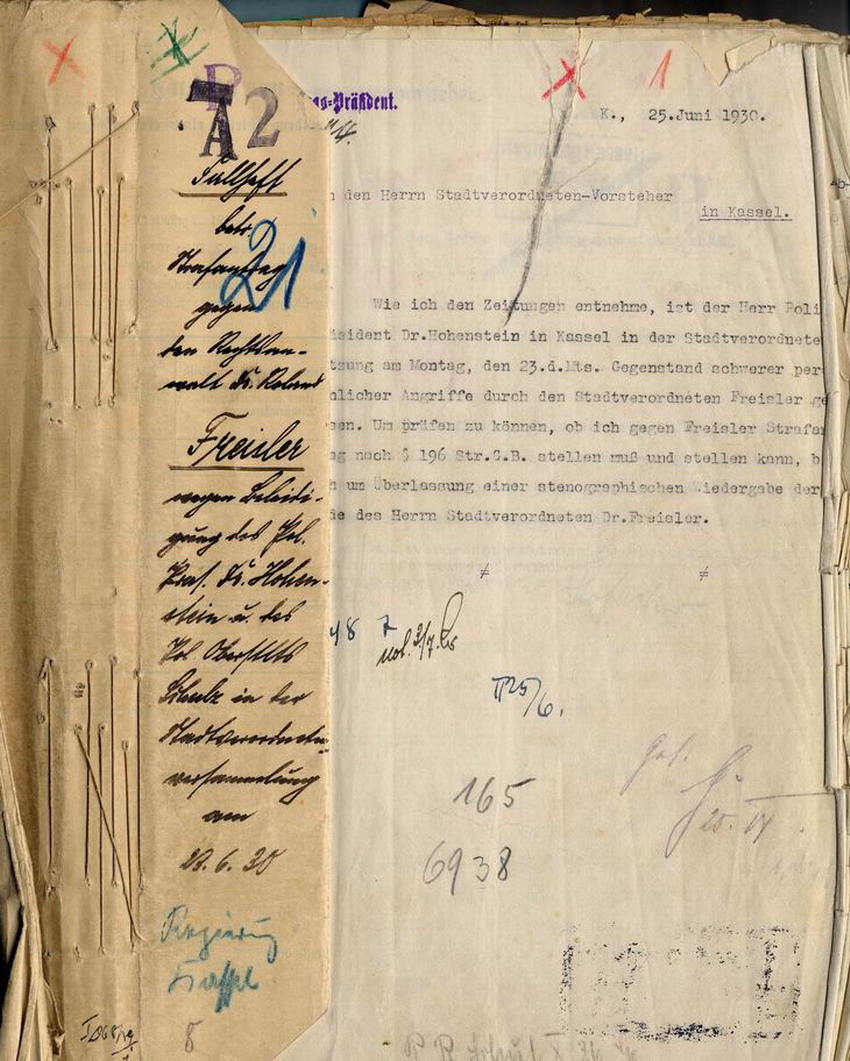 A 2
Fallheft
betr.
Strafantrag
21
gegen
den Rechtsan-
walt Dr. Roland
Freisler
wegen Beleidi-
gung des Pol.
Präs. Dr. Hohen-
stein u. des
Pol Oberstlts
Schulz in der
Stadtverordneten
versammlung
am
23.6.30
Regierung
Kassel
8
gs=Präsident.
1
K., 25.Juni 1930.
n den Herrn Stadtverordneten-Vorsteher
in Kassel.
Wie ich den Zeitungen entnehme, ist der Herr Poli
äsident Dr.Hohenstein in Kassel in der Stadtverordnete
tzung am Montag, den 23.d.Mts. Gegenstand schwerer per-
nlicher Angriffe durch den Stadtverordneten Freisler ge
sen. Um prüfen zu können, ob ich gegen Freisler Strafan
ag nach § 196 Str.G.B. stellen muß und stellen kann, b
h um Überlassung einer stenographischen Wiedergabe der
de des Herrn Stadtverordneten Dr.Freisler.
≠ ≠
48 7
25/6.
165
6938